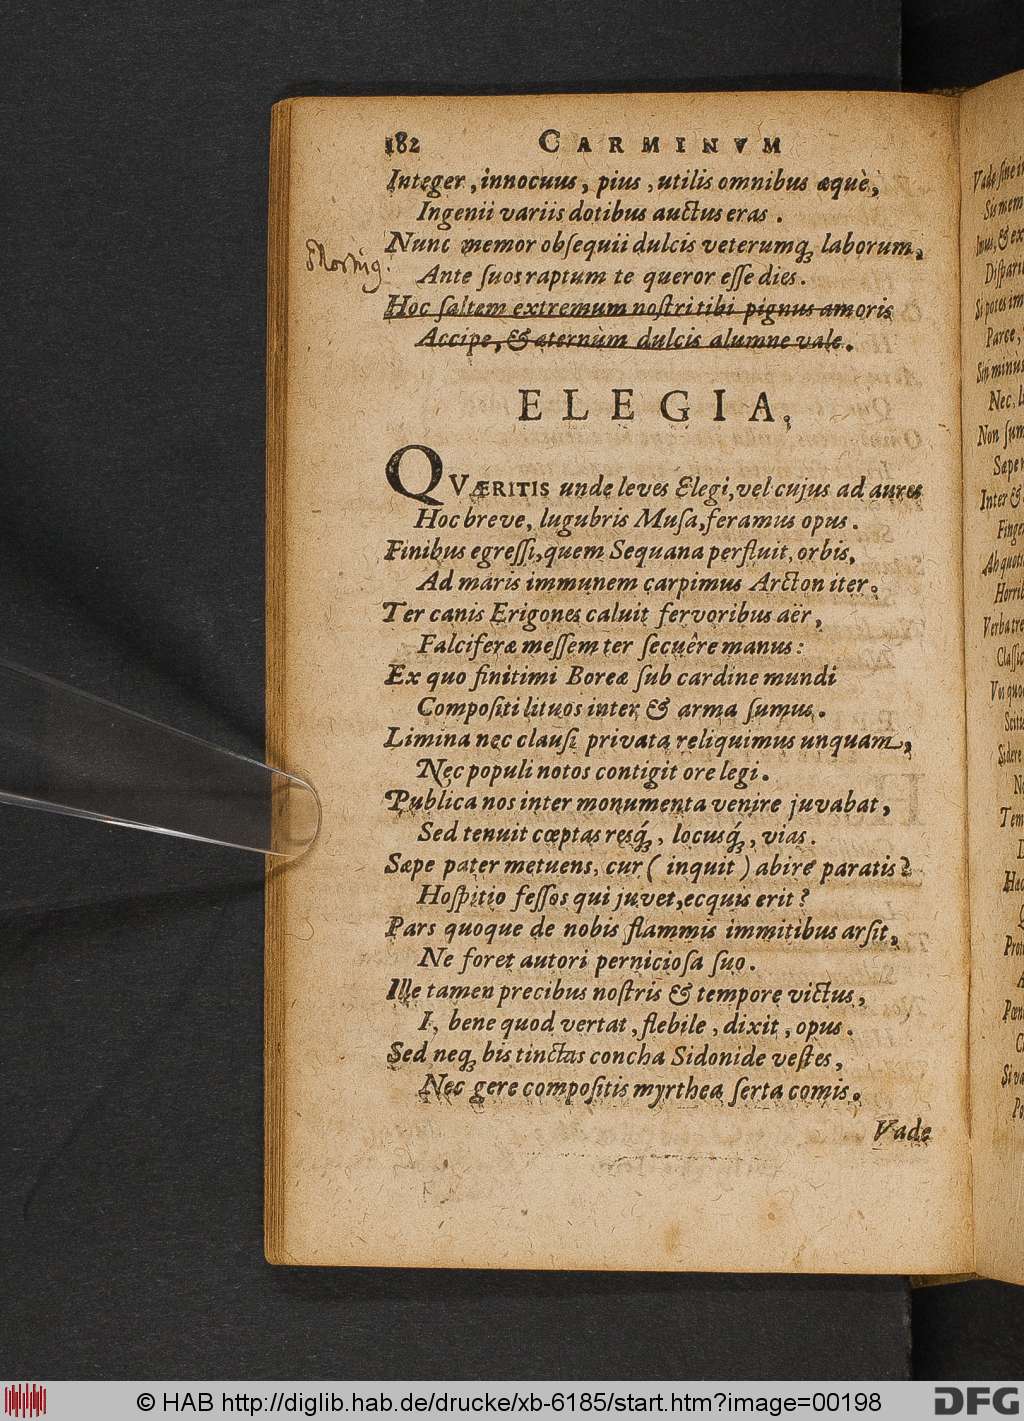 182 CARMINVM
Integer, innocuus, pius, utilis omnibus æquè,
Ingenii variis dotibus auctus eras.
Nunc memor obſequii dulcis veterumq́ʒ laborum,
Ante ſuos raptum te queror eſſe dies.
Hoc ſaltem extremum noſtri tibi pignus amoris
Accipe, & æternùm dulcis alumne vale.
ELEGIA.
QVÆRITIS unde leves Elegi, vel cujus ad aures
Hoc breve, lugubris Muſa, feramus opus.
Finibus egreſſi, quem Sequana perfluit, orbis,
Ad maris immunem carpimus Arcton iter.
Ter canis Erigones caluit fervoribus aër,
Falciferæ meſſem ter ſecuêre manus:
Ex quo finitimi Boreæ ſub cardine mundi
Compoſiti lituos inter & arma ſumus.
Limina nec clauſi privata reliquimus unquam,
Nec populi notos contigit ore legi.
Publica nos inter monumenta venire juvabat,
Sed tenuit cœptas resq́ʒ, locusq́ʒ, vias.
Sæpe pater metuens, cur (inquit) abire paratis?
Hoſpitio feſſos qui juvet, ecquis erit?
Pars quoque de nobis flammis immitibus arſit,
Ne foret autori pernicioſa ſuo.
Ille tamen precibus noſtris & tempore victus,
I, bene quod vertat, flebile, dixit, opus.
Sed neqʒ bis tinctas concha Sidonide veſtes,
Nec gere compoſitis myrthea ſerta comis.
Vade
© HAB http://diglib.hab.de/drucke/xb-6185/start.htm?image=00198
DFG